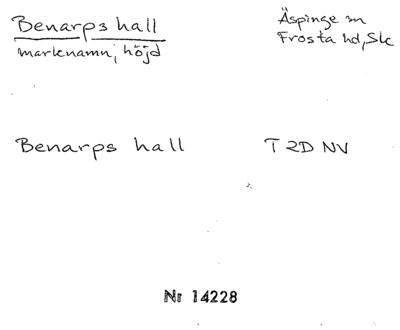 Benarps hall
Äspinge sn
marknamn, höjd
Frosta hd, Sk
Benarps hall
T 2D NV
Nr 14228